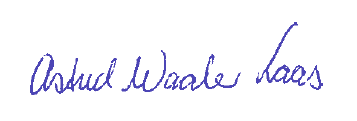 Astrid Waale Laas